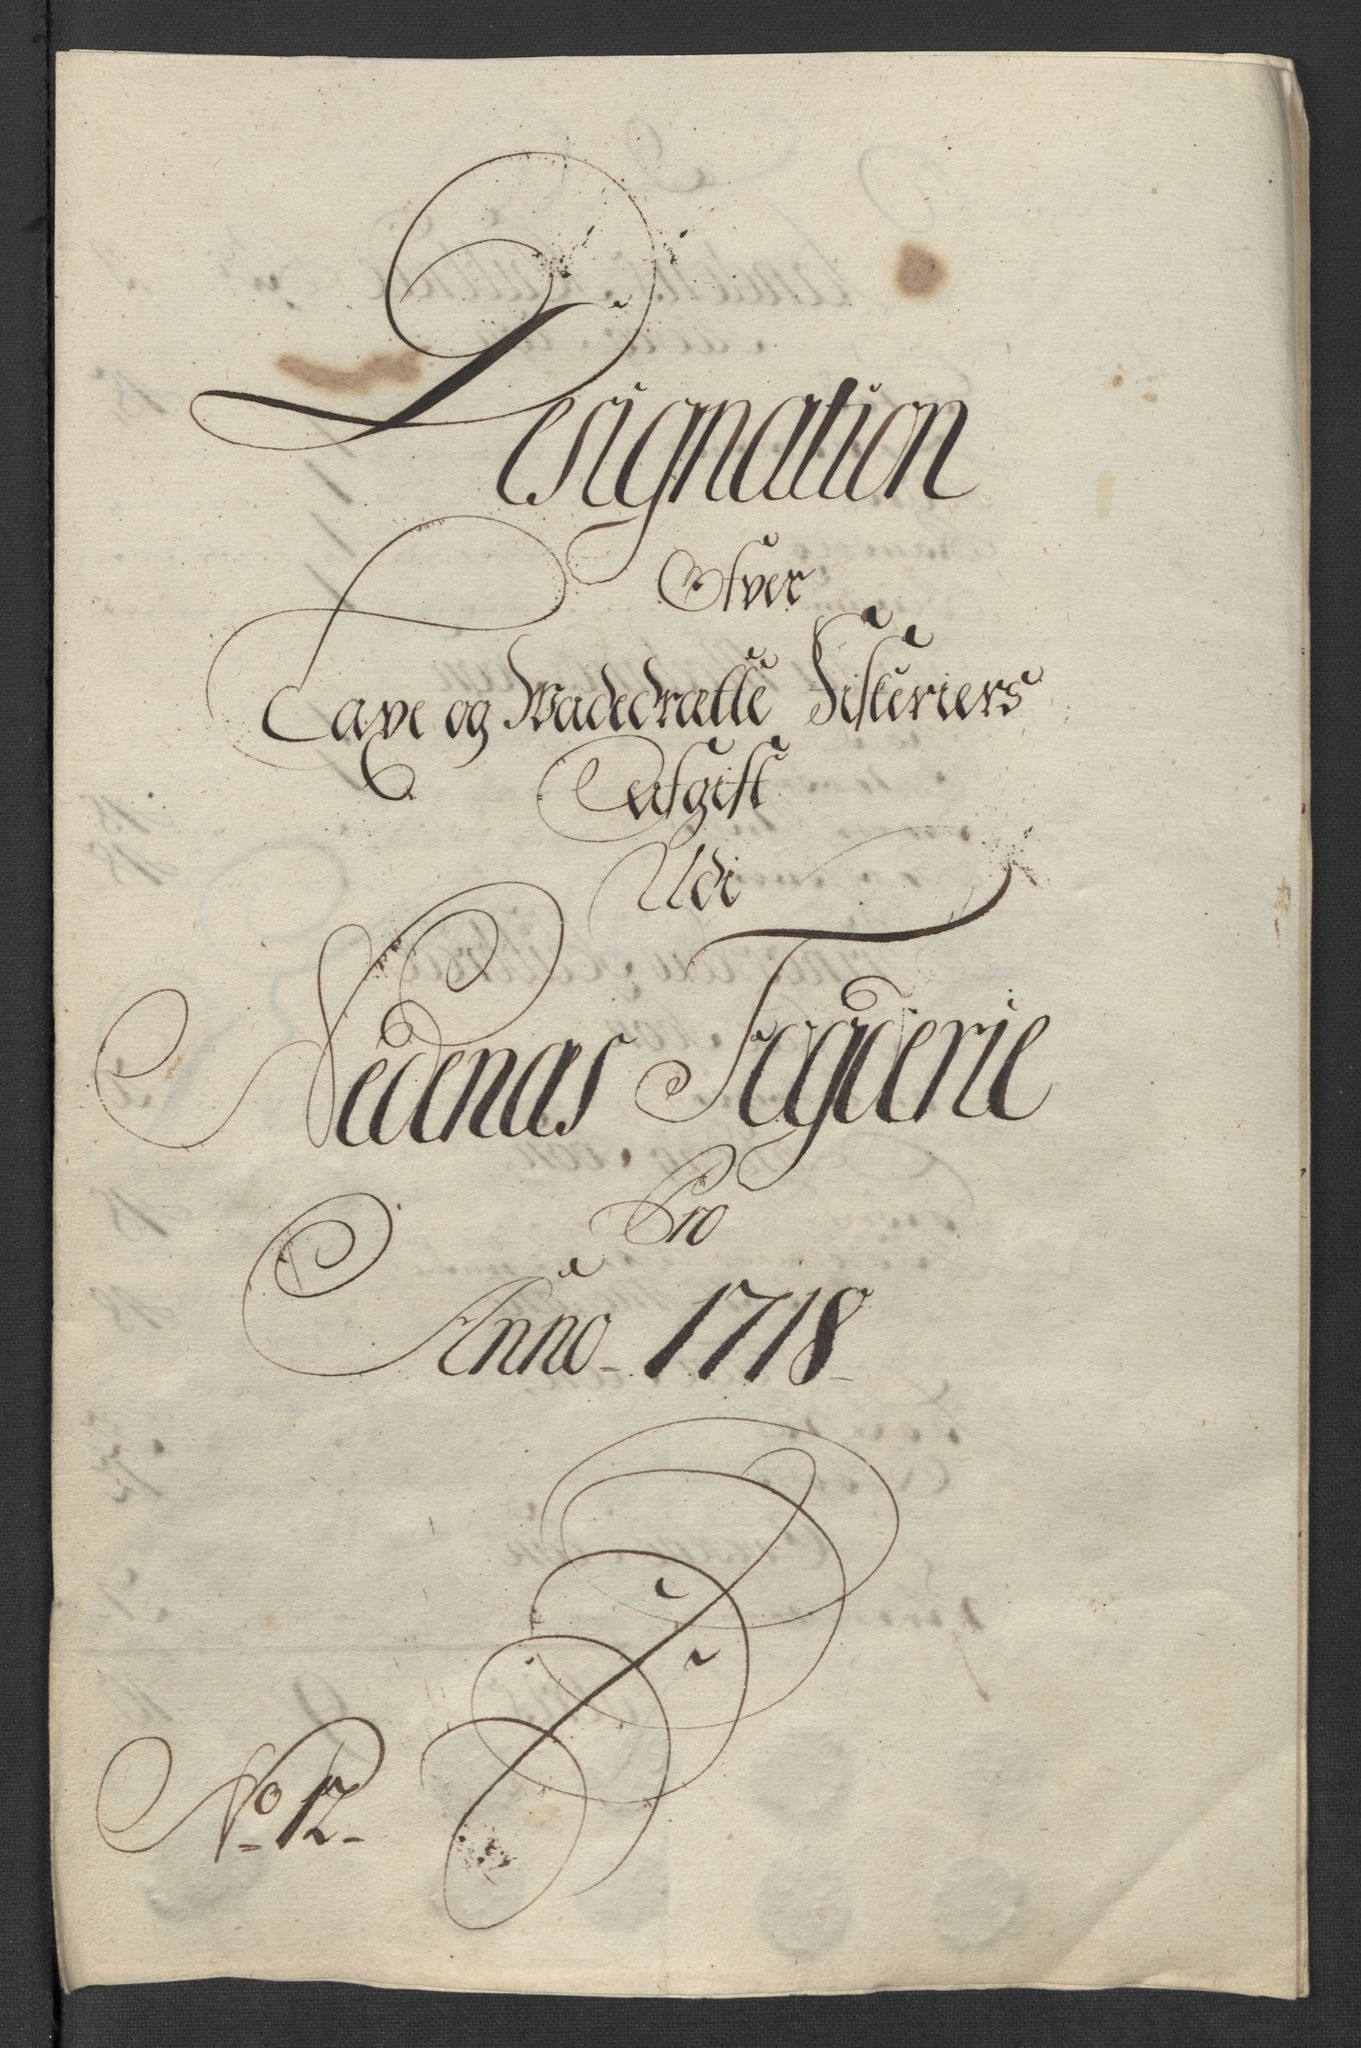 Designation
Ofver
Laxe og Wadedrætte Fiskeriers
Aufgift
Udi
Nedenæs Fogderie
Pro
Anno 1718
No 12